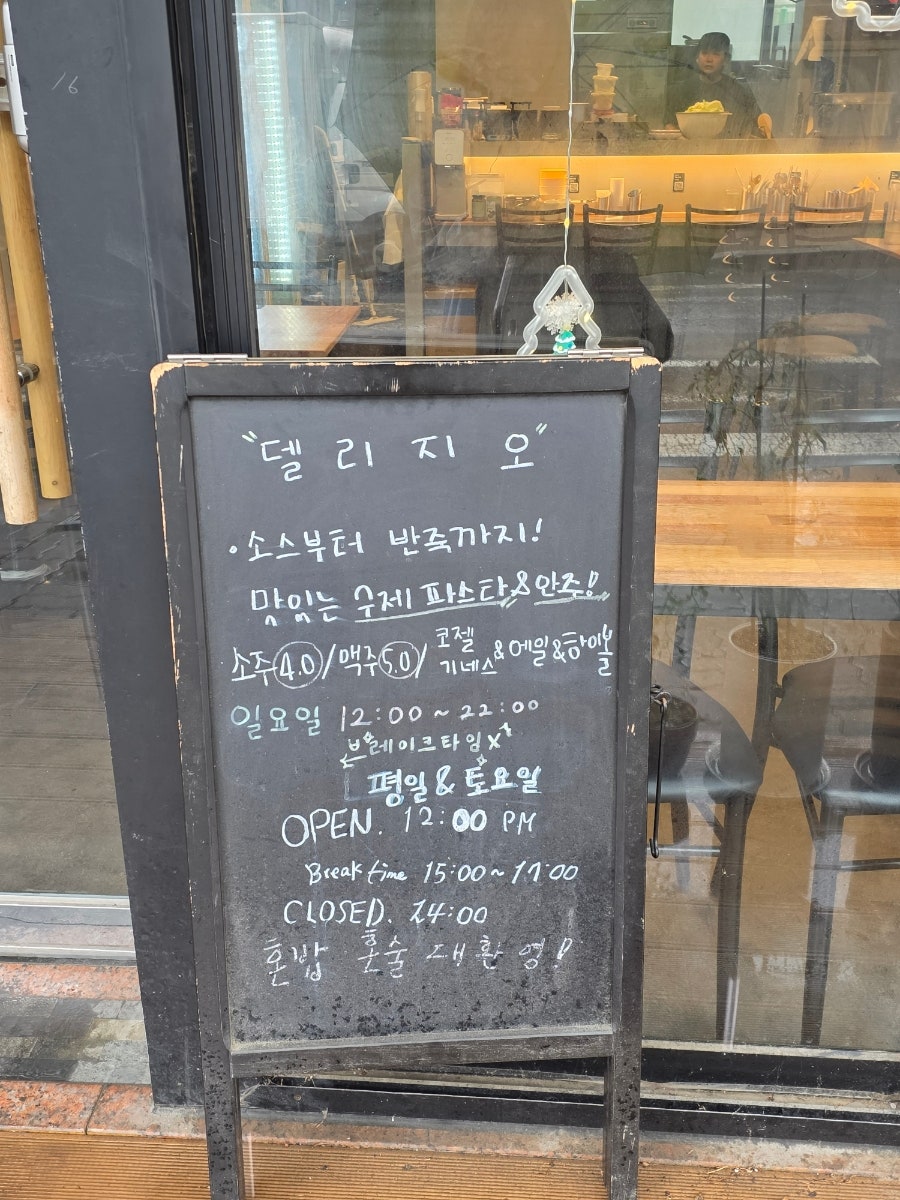 "델리지오"
• 소스부터 반죽까지!
맛있는 수제 파스타 & 안주!
소주 4.0 / 맥주 5.0 / 코젤 기네스 & 에일 & 하이볼
일요일 12:00 ~ 22:00
브레이크타임 X
평일 & 토요일
OPEN. 12:00 PM
Break time 15:00 ~ 17:00
CLOSED. 24:00
혼밥 혼술 대환영!
16